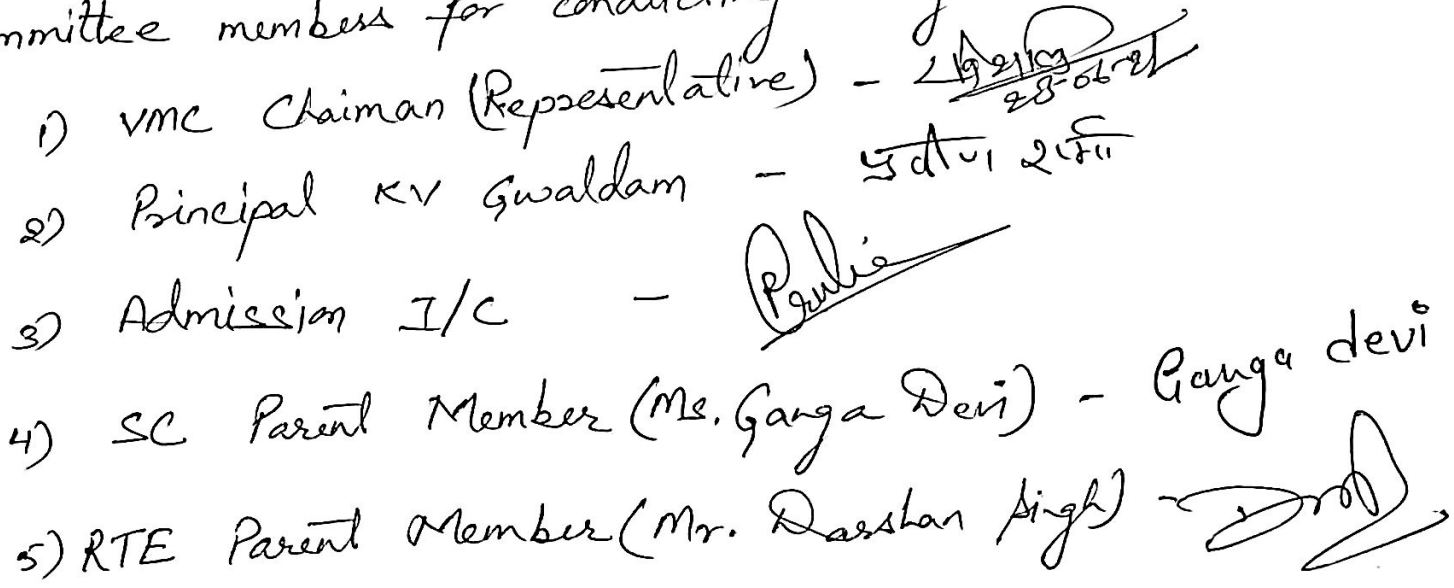 mmittee members for
1) VMC Chaiman (Representative) -
2) Principal KV Gwaldam - प्रवीण शर्मा
3) Admission I/C -
4) SC Parent Member (Ms. Ganga Devi) - Ganga devi
5) RTE Parent Member (Mr. Darshan Singh) -